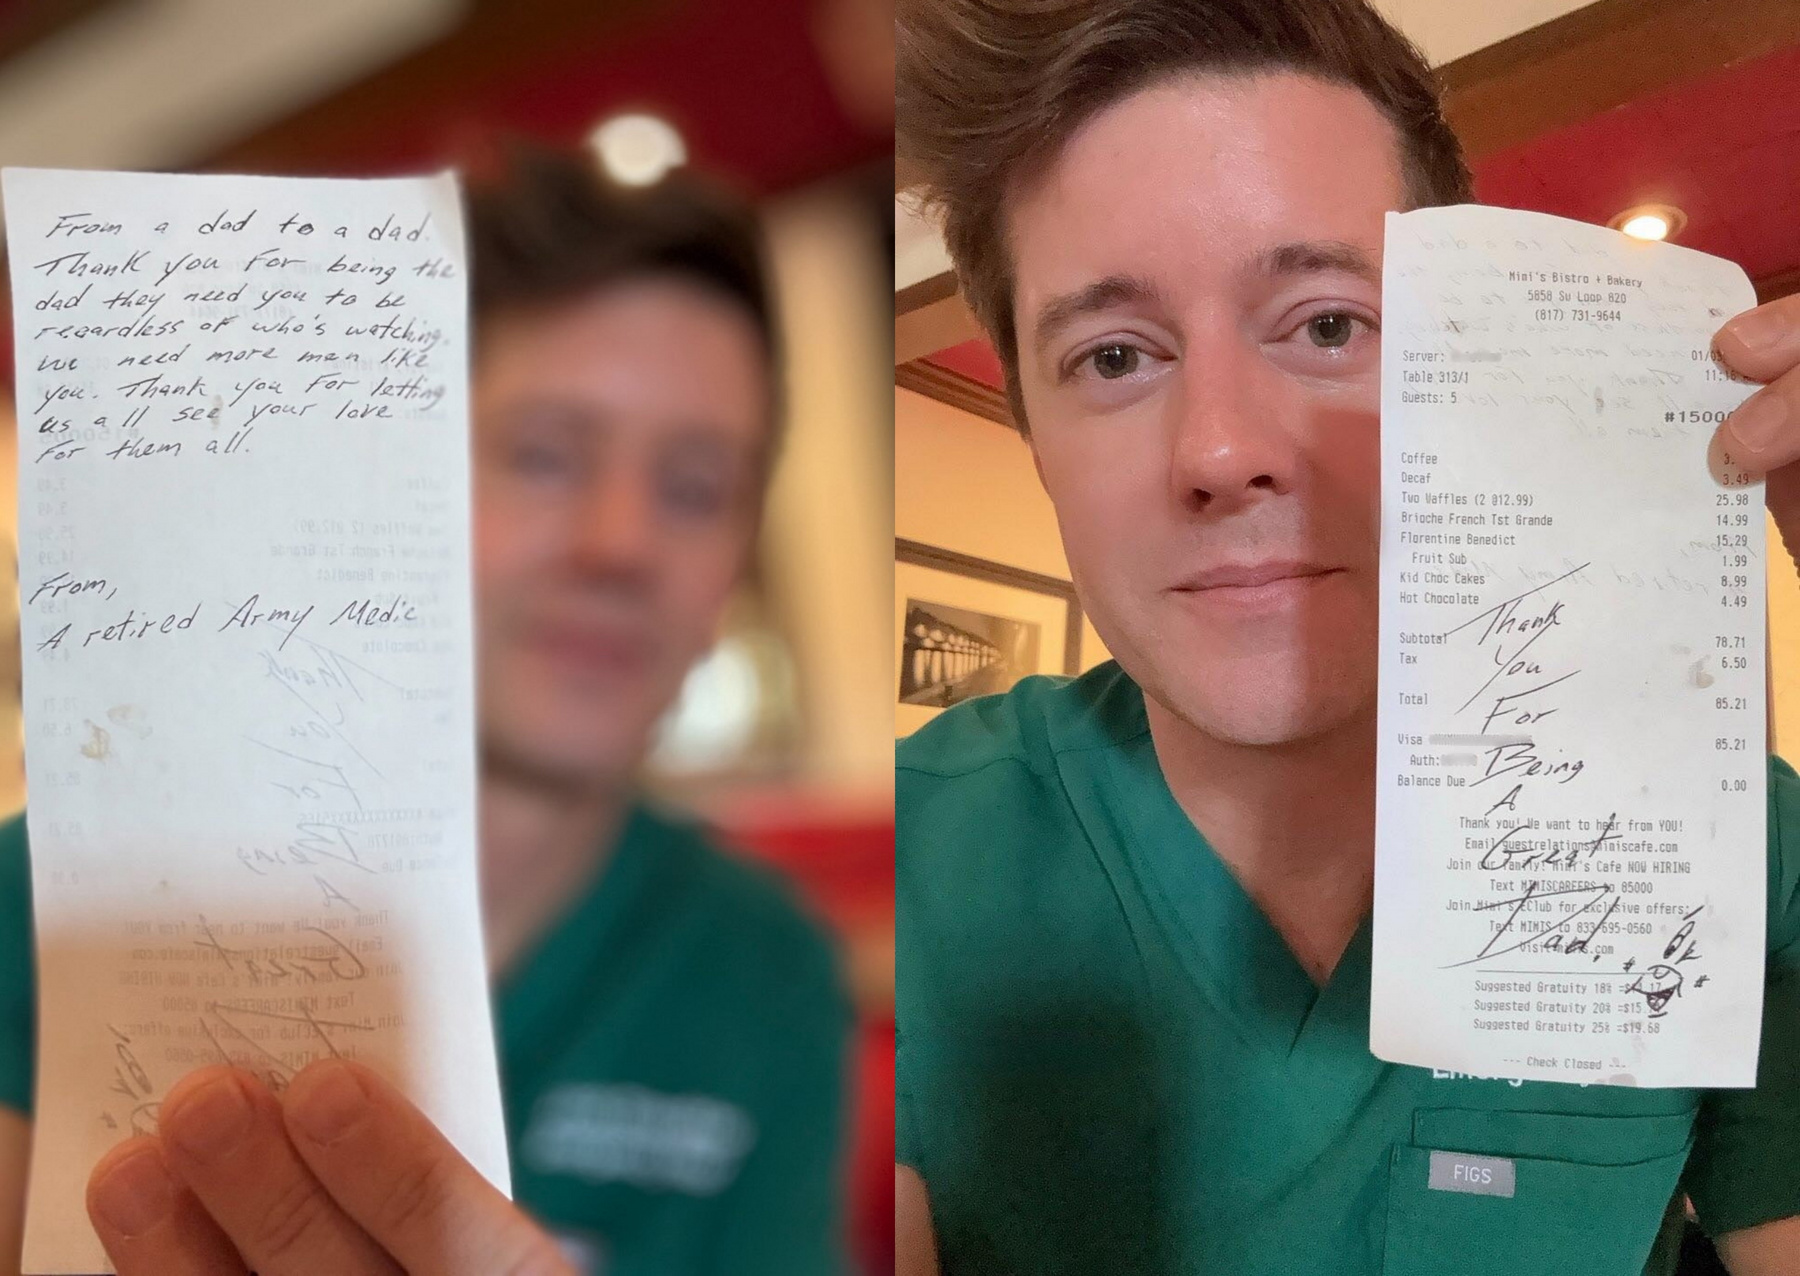 From a dad to a dad.
Thank you For being the
dad they need you to be
regardless of who's watching.
we need more men like
you. Thank you For letting
us all see your love
For them all.
From,
A retired Army Medic
Mimi's Bistro + Bakery
5858 Sw Loop 820
(817) 731-9644
Server:
Table 313/1
Guests: 5
Coffee
Decaf 3.49
Two Waffles (2 @12.99) 25.98
Brioche French Tst Grande 14.99
Florentine Benedict 15.29
Fruit Sub 1.99
Kid Choc Cakes 8.99
Hot Chocolate 4.49
Subtotal 78.71
Tax 6.50
Total 85.21
Visa 85.21
Auth:
Balance Due 0.00
Thank
You
For
Being
A
Great
Dad.
Thank you! We want to hear from YOU!
Email guestrelations@mimiscafe.com
Join our family! Mimi's Cafe NOW HIRING
Text MIMISCAREERS to 85000
Join Mimi's EClub for exclusive offers:
Text MIMIS to 833-695-0560
Visit mimis.com
Suggested Gratuity 18% =$14.17
Suggested Gratuity 20% =$15.
Suggested Gratuity 25% =$19.68
--- Check Closed ---
FIGS